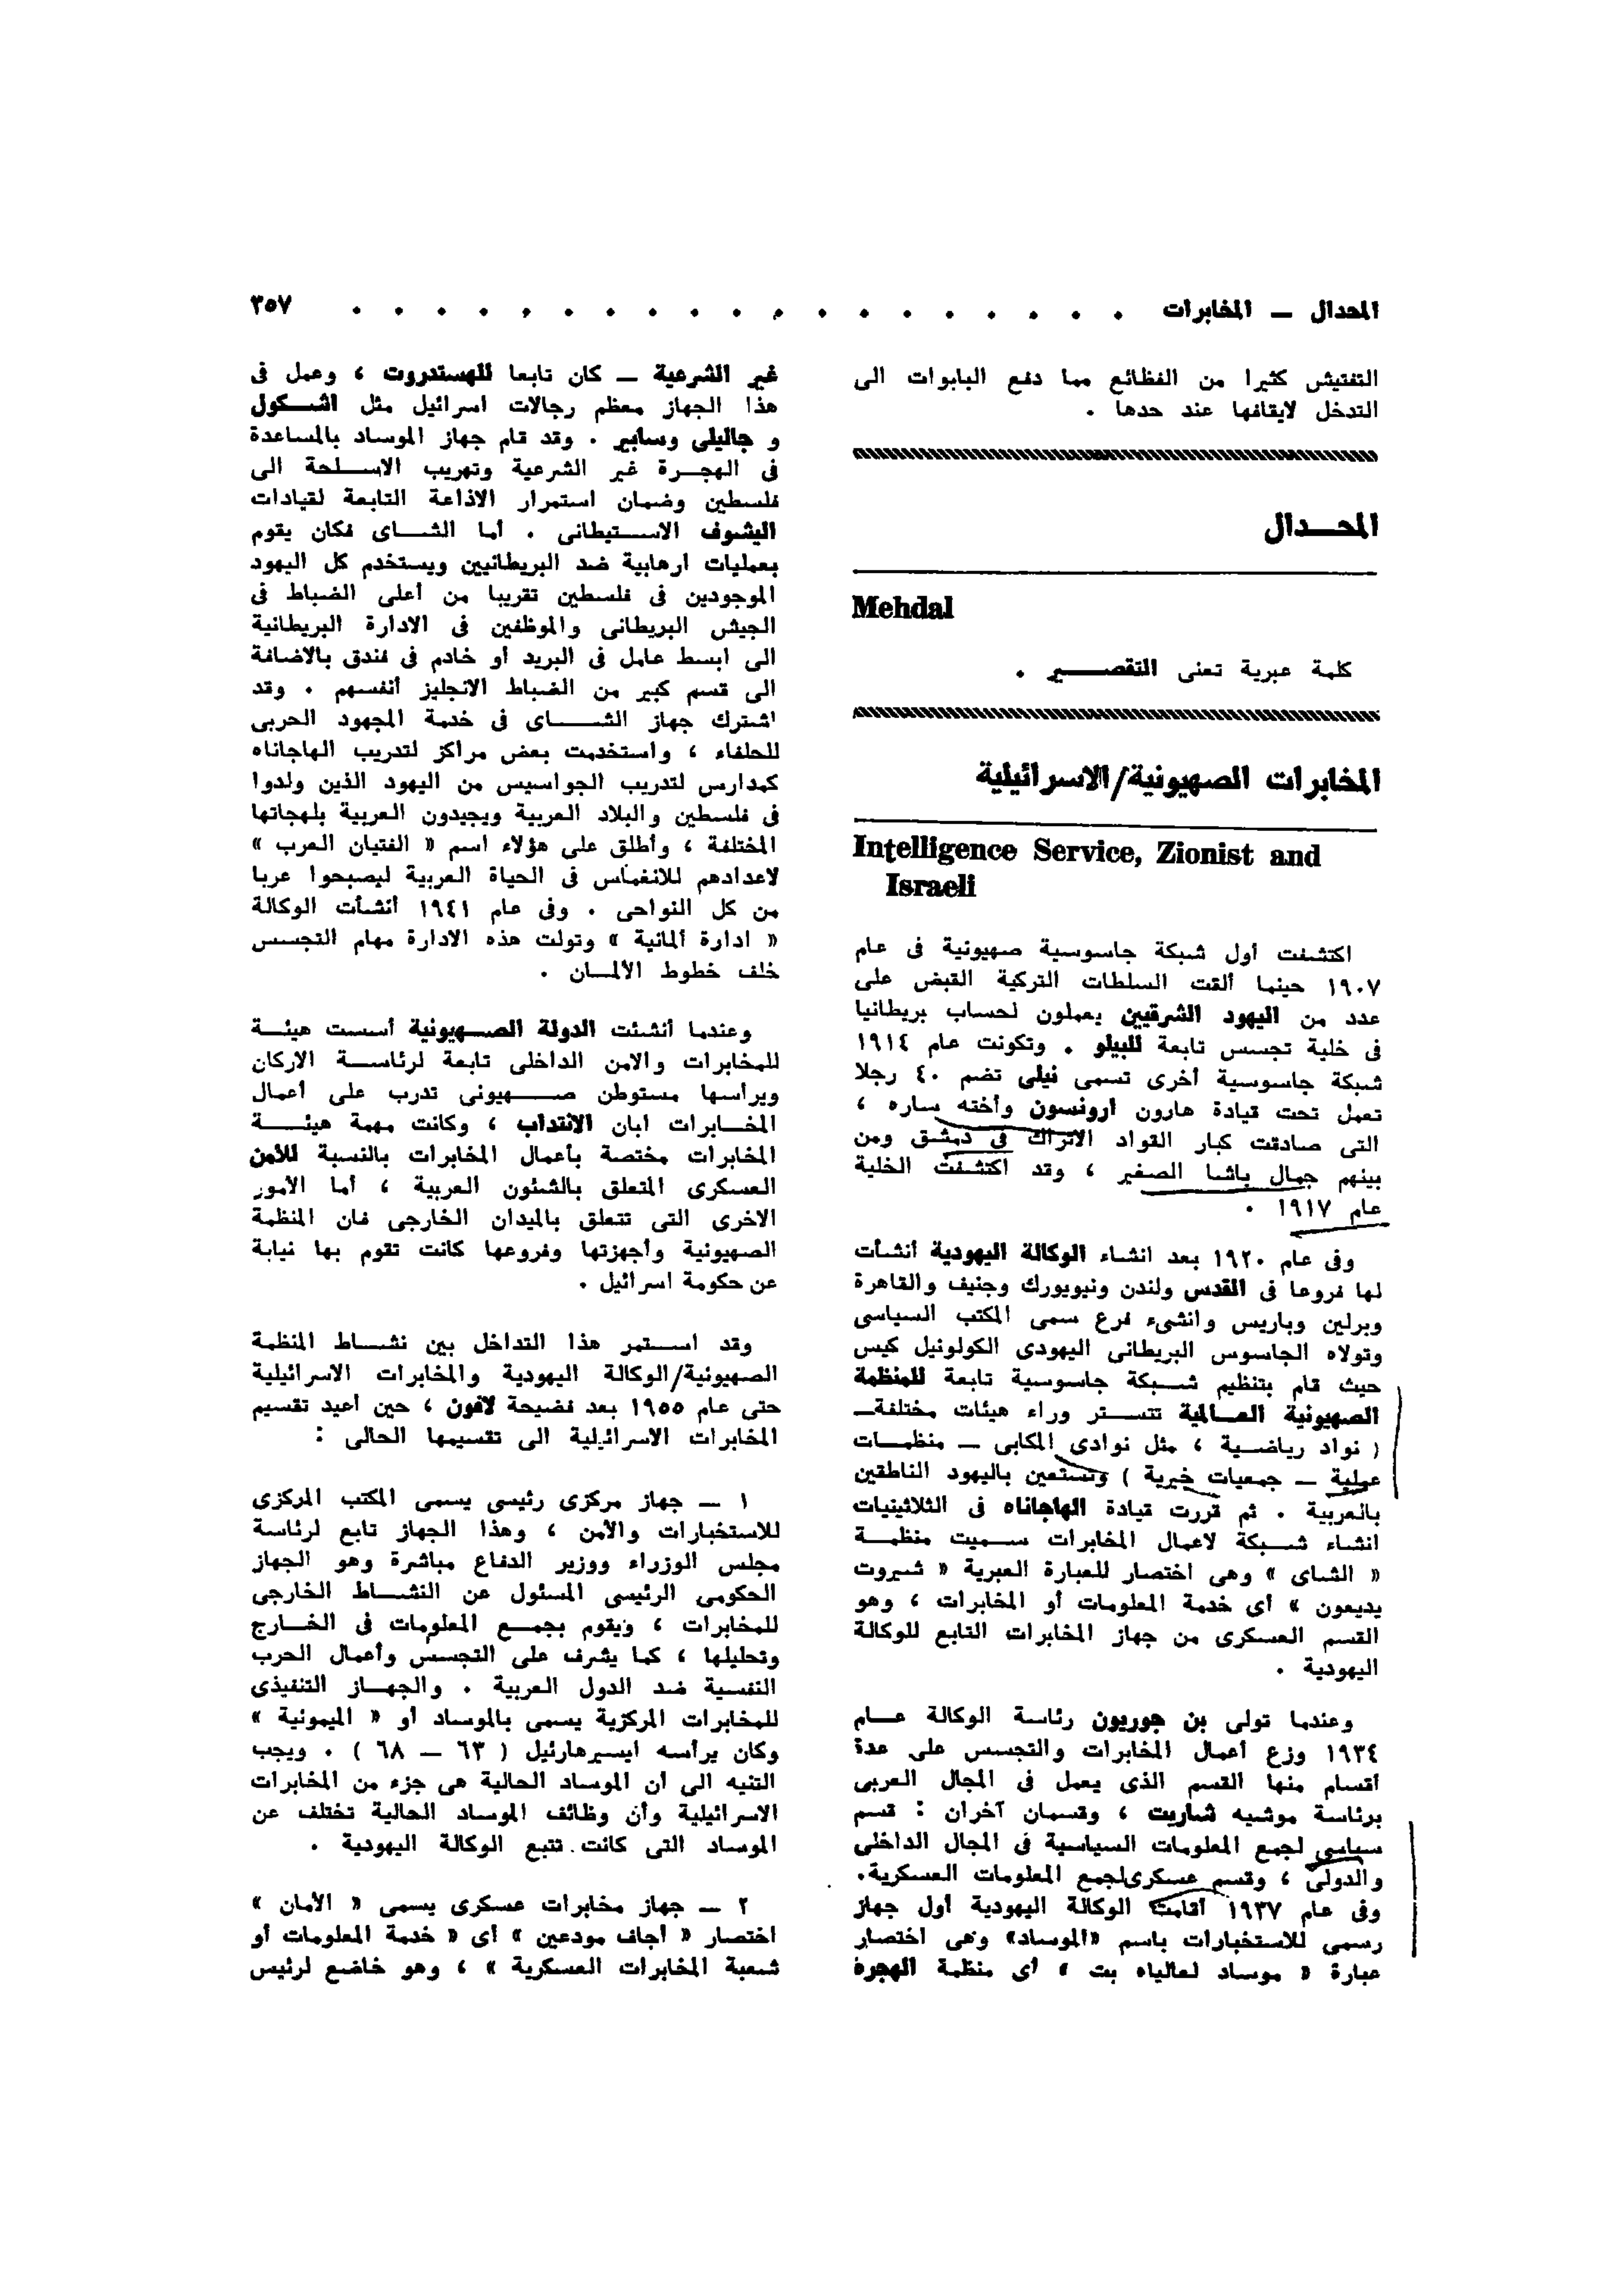 المحدال — المخابرات . . . . . . . . . . . . . . . . . . . ٣٥٧
التفتيش كثيرا من الفظائع مما دفع البابوات الى
التدخل لايقافها عند حدها .
المحـــدال
Mehdal
كلمة عبرية تعنى التقصـــــير .
المخابرات الصهيونية/الاسرائيلية
Intelligence Service, Zionist and
Israeli
اكتشفت أول شبكة جاسوسية صهيونية فى عام
١٩٠٧ حينما ألقت السلطات التركية القبض على
عدد من اليهود الشرقيين يعملون لحساب بريطانيا
فى خلية تجسس تابعة للبيلو . وتكونت عام ١٩١٤
شبكة جاسوسية أخرى تسمى نيلى تضم ٤٠ رجلا
تعمل تحت قيادة هارون أرونسون وأخته ساره ،
التى صادقت كبار القواد الأتراك فى دمشق ومن
بينهم جمال باشا الصغير ، وقد اكتشفت الخلية
عام ١٩١٧ .
وفى عام ١٩٢٠ بعد انشاء الوكالة اليهودية أنشأت
لها فروعا فى القدس ولندن ونيويورك وجنيف والقاهرة
وبرلين وباريس وانشىء فرع سمى المكتب السياسى
وتولاه الجاسوس البريطانى اليهودى الكولونيل كيس
حيث قام بتنظيم شـــبكة جاسوسية تابعة للمنظمة
الصهيونية العـــالمية تتســـتر وراء هيئات مختلفة—
( نواد رياضــية ، مثل نوادى المكابى — منظمــات
عملية — جمعيات خيرية ) وتستعين باليهود الناطقين
بالعربية . ثم قررت قيادة الهاجاناه فى الثلاثينيات
انشاء شـــبكة لاعمال المخابرات ســـميت منظمـــة
« الشاى » وهى اختصار للعبارة العبرية « شيروت
يديعون » أى خدمة المعلومات أو المخابرات ، وهو
القسم العسكرى من جهاز المخابرات التابع للوكالة
اليهودية .
وعندما تولى بن جوريون رئاسة الوكالة عـــام
١٩٣٤ وزع أعمال المخابرات والتجسس على عدة
أقسام منها القسم الذى يعمل فى المجال العربى
برئاسة موشيه شاريت ، وقسمان آخران : قسم
سياسى لجمع المعلومات السياسية فى المجال الداخلى
والدولى ، وقسم عسكرى لجمع المعلومات العسكرية.
وفى عام ١٩٣٧ أقامت الوكالة اليهودية أول جهاز
رسمى للاستخبارات باسم «الموساد» وهى اختصار
عبارة « موساد لعالياه بت » أى منظمة الهجرة
غير الشرعية — كان تابعا للهستدروت ، وعمل فى
هذا الجهاز معظم رجالات اسرائيل مثل اشــكول
و جاليلى وسابير . وقد قام جهاز الموساد بالمساعدة
فى الهجـــرة غير الشرعية وتهريب الاســـلحة الى
فلسطين وضمان استمرار الاذاعة التابعة لقيادات
اليشوف الاســـتيطانى . أما الشـــاى فكان يقوم
بعمليات ارهابية ضد البريطانيين ويستخدم كل اليهود
الموجودين فى فلسطين تقريبا من أعلى الضباط فى
الجيش البريطانى والموظفين فى الادارة البريطانية
الى ابسط عامل فى البريد أو خادم فى فندق بالاضافة
الى قسم كبير من الضباط الانجليز أنفسهم . وقد
اشترك جهاز الشـــــاى فى خدمة المجهود الحربى
للحلفاء ، واستخدمت بعض مراكز لتدريب الهاجاناه
كمدارس لتدريب الجواسيس من اليهود الذين ولدوا
فى فلسطين والبلاد العربية ويجيدون العربية بلهجاتها
المختلفة ، وأطلق على هؤلاء اسم « الفتيان العرب »
لاعدادهم للانغماس فى الحياة العربية ليصبحوا عربا
من كل النواحى . وفى عام ١٩٤١ أنشأت الوكالة
« ادارة ألمانية » وتولت هذه الادارة مهام التجسس
خلف خطوط الألمــان .
وعندما أنشئت الدولة الصـــهيونية أسست هيئـــة
للمخابرات والامن الداخلى تابعة لرئاســـة الاركان
ويرأسها مستوطن صـــــهيونى تدرب على أعمال
المخـــابرات ابان الانتداب ، وكانت مهمة هيئـــــة
المخابرات مختصة بأعمال المخابرات بالنسبة للأمن
العسكرى المتعلق بالشئون العربية ، أما الأمور
الاخرى التى تتعلق بالميدان الخارجى فان المنظمة
الصهيونية وأجهزتها وفروعها كانت تقوم بها نيابة
عن حكومة اسرائيل .
وقد اســـتمر هذا التداخل بين نشـــاط المنظمة
الصهيونية/الوكالة اليهودية والمخابرات الاسرائيلية
حتى عام ١٩٥٥ بعد فضيحة لافون ، حين أعيد تقسيم
المخابرات الاسرائيلية الى تقسيمها الحالى :
١ — جهاز مركزى رئيسى يسمى المكتب المركزى
للاستخبارات والأمن ، وهذا الجهاز تابع لرئاسة
مجلس الوزراء ووزير الدفاع مباشرة وهو الجهاز
الحكومى الرئيسى المسئول عن النشـــاط الخارجى
للمخابرات ، ويقوم بجمـــع المعلومات فى الخـــارج
وتحليلها ، كما يشرف على التجسس وأعمال الحرب
النفسية ضد الدول العربية . والجهـــاز التنفيذى
للمخابرات المركزية يسمى بالموساد أو « الميمونية »
وكان يرأسه ايسيرهارئيل ( ٦٣ — ٦٨ ) . ويجب
التنيه الى أن الموساد الحالية هى جزء من المخابرات
الاسرائيلية وأن وظائف الموساد الحالية تختلف عن
الموساد التى كانت تتبع الوكالة اليهودية .
٢ — جهاز مخابرات عسكرى يسمى « الأمان »
اختصار « أجاف مودعين » أى « خدمة المعلومات أو
شعبة المخابرات العسكرية » ، وهو خاضع لرئيس